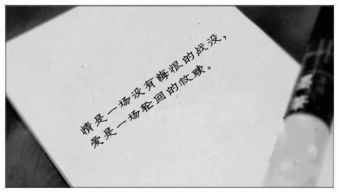 情是一场没有悔恨的战没，
爱是一场轮回的救赎。